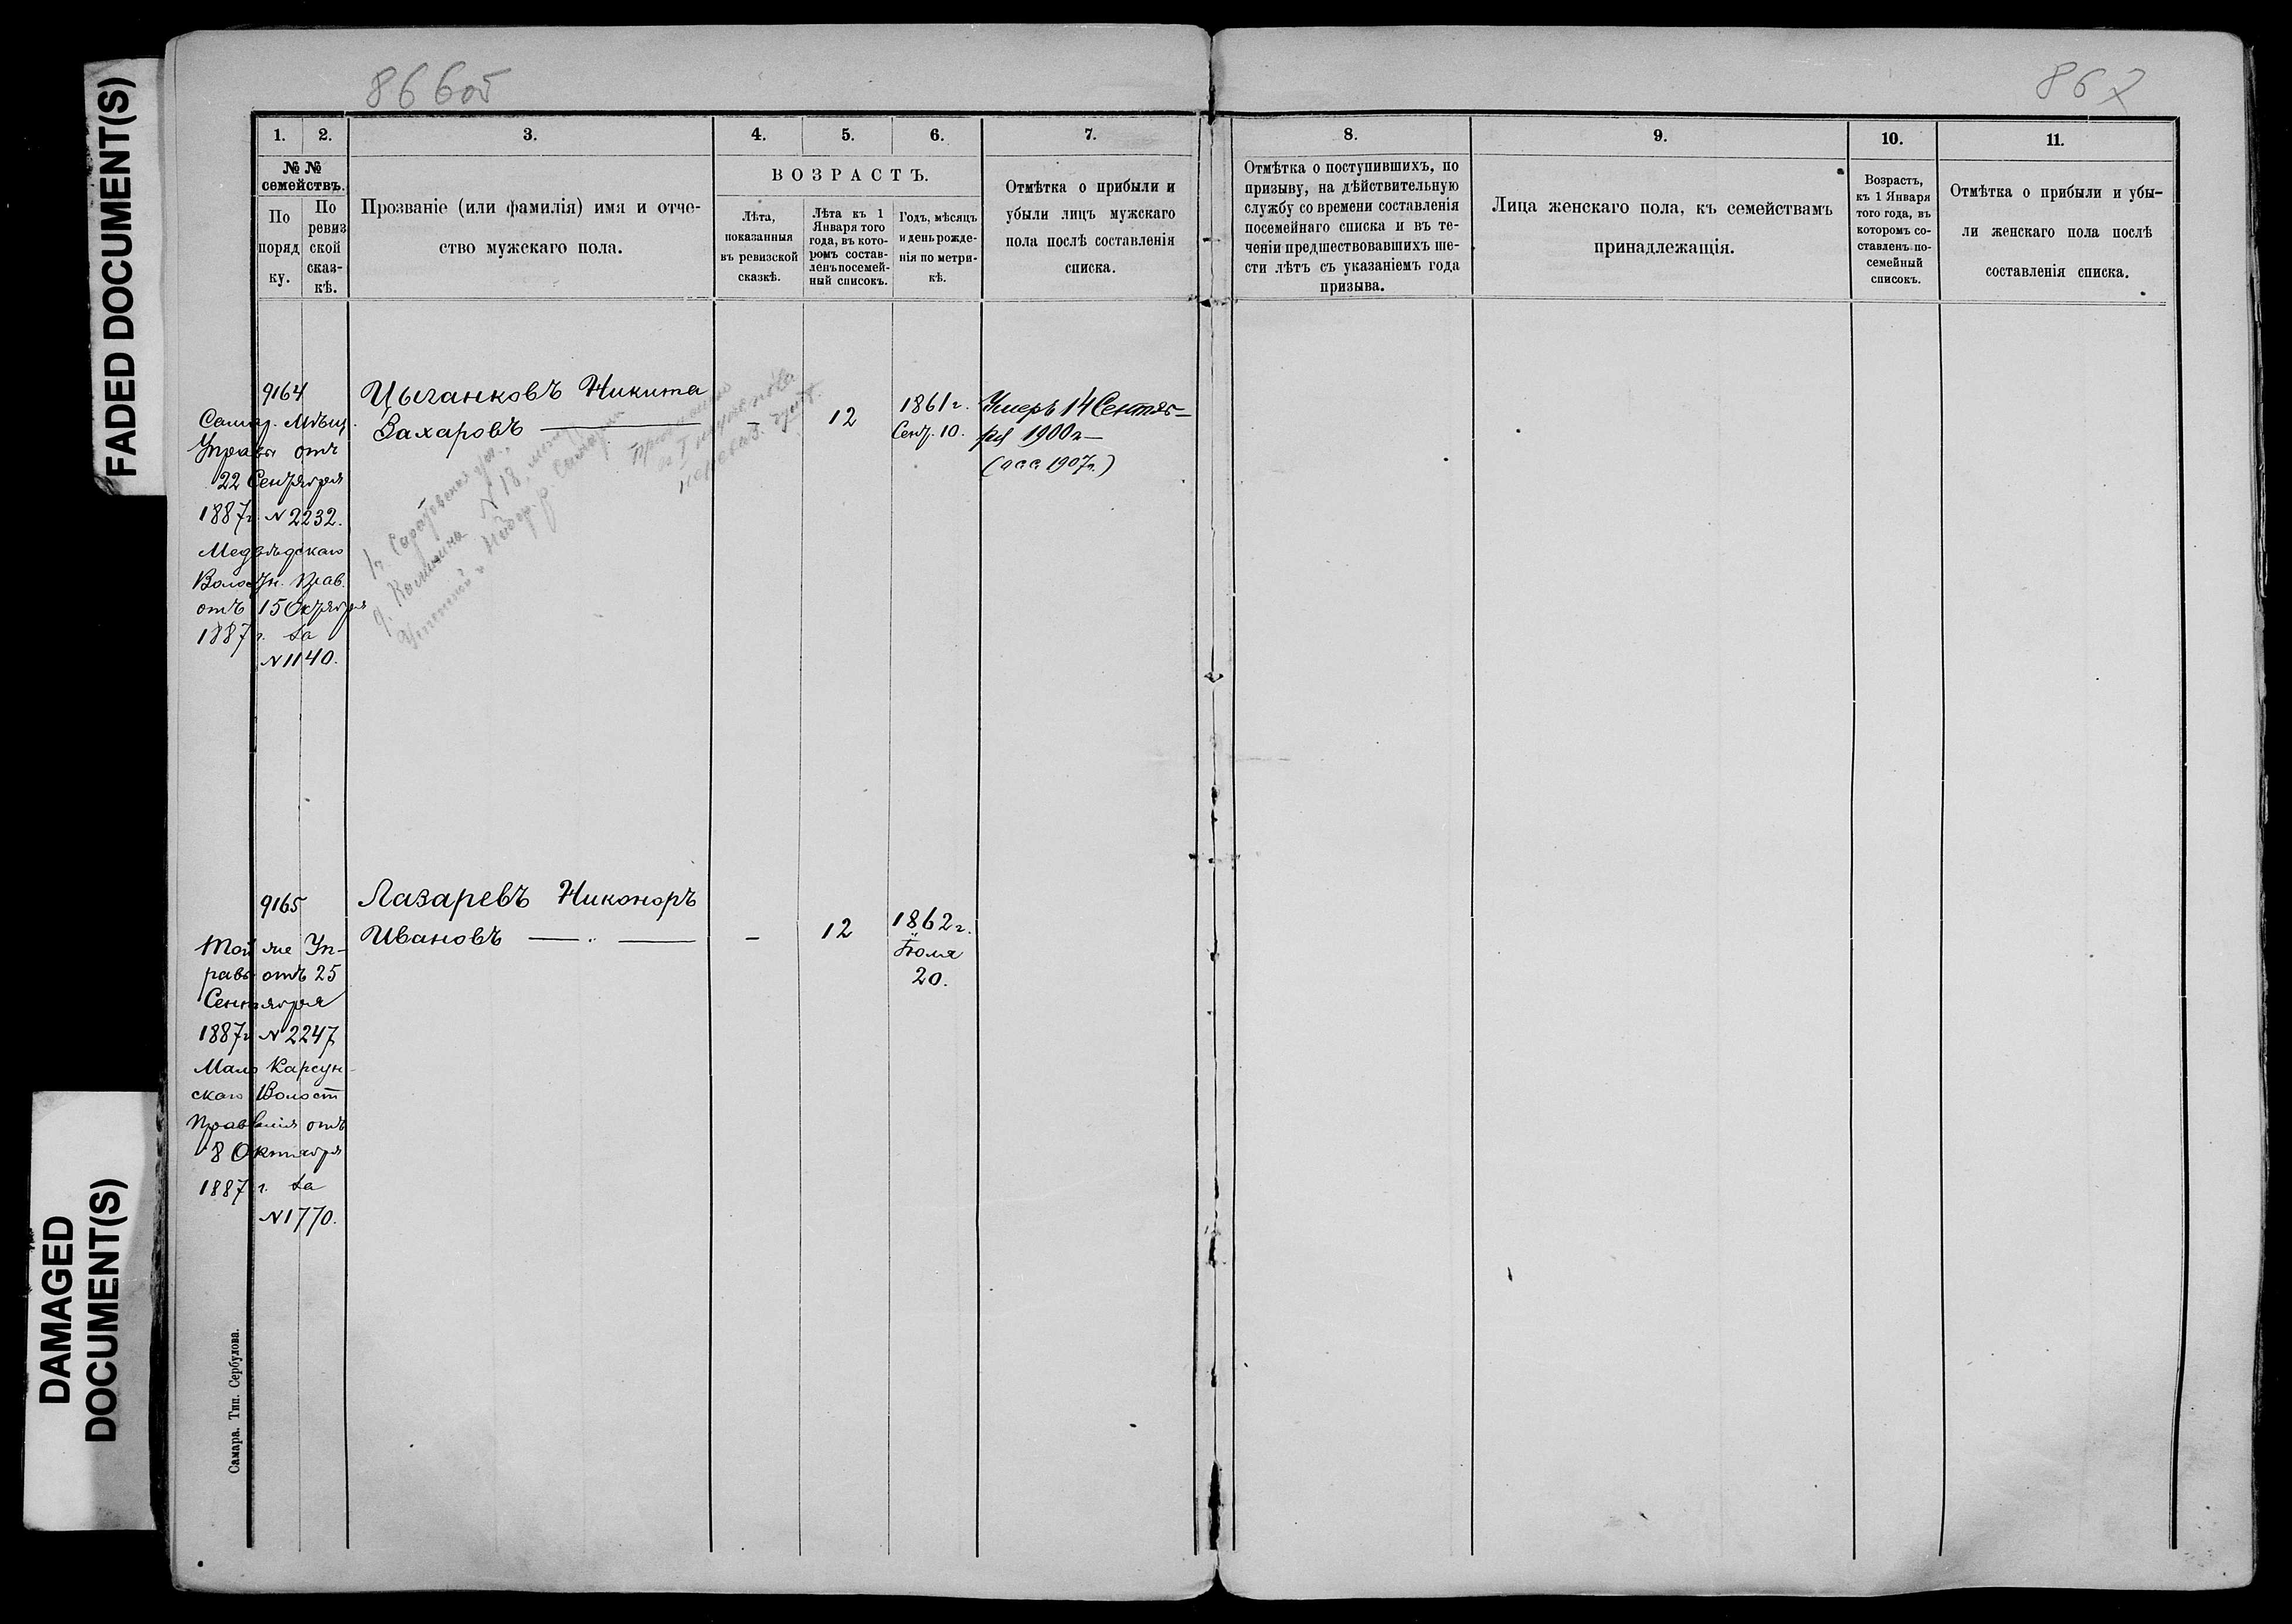 FADED DOCUMENT(S)
DAMAGED
DOCUMENT(S)
86 об
867
1. 2. 3. 4. 5. 6. 7.
№ №
семействъ.
По
поряд
ку.
По
ревиз
ской
сказ-
кѣ.
Прозваніе (или фамилія) имя и отче-
ство мужскаго пола.
ВОЗРАСТЪ.
Лѣта,
показанныя
въ ревизской
сказкѣ.
Лѣта къ 1
Января того
года, въ кото-
ромъ состав-
ленъ посемей-
ный списокъ.
Годъ, мѣсяцъ
и день рожде-
нія по метри-
кѣ.
Отмѣтка о прибыли и
убыли лицъ мужскаго
пола послѣ составленія
списка.
8. 9. 10. 11.
Отмѣтка о поступившихъ, по
призыву, на дѣйствительную
службу со времени составленія
посемейнаго списка и въ те-
ченіи предшествовавшихъ ше-
сти лѣтъ съ указаніемъ года
призыва.
Лица женскаго пола, къ семействамъ
принадлежащія.
Возрастъ,
къ 1 Января
того года, въ
которомъ со-
ставленъ по-
семейный
списокъ.
Отмѣтка о прибыли и убы-
ли женскаго пола послѣ
составленія списка.
9164
Самар. Мѣщ.
Управы отъ
22 Сентября
1887г. N 2232.
Медвѣдскаго
Волостн. Прав.
отъ 15 Октября
1887г. за
N 1140.
Цыганковъ Никита
Захаровъ —
—
12
1861г.
Сент. 10.
Умеръ 14 Сентяб-
ря 1900г—
1907г.)
N 18
9165
Той же Уп-
равы отъ 25
Сентября
1887г N 2247
Мало Карсун-
скаго Волост
Правленія отъ
8 Октября
1887г. за
N 1770.
Лазаревъ Никоноръ
Ивановъ — " —
—
12
1862г.
Іюля
20.
Самара. Тип. Сербулова.